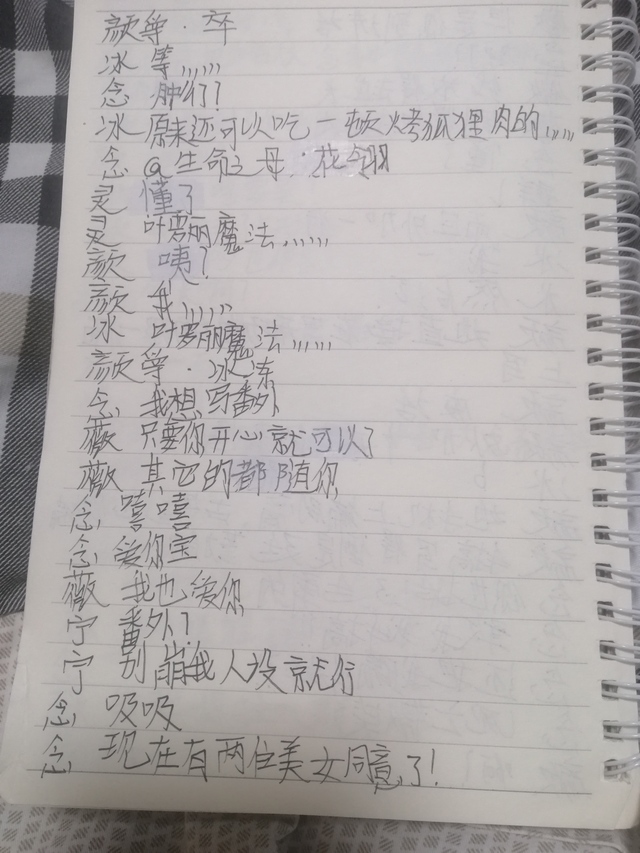 颜爵·卒
冰 等,,,,,,
念 肿么了?
冰 原来还可以吃一顿烤狐狸肉的,,,,,
念 @生命之母·花翎
灵 懂了
灵 叶罗丽魔法,,,,,,
颜 咦?
颜 我,,,,,,
冰 叶罗丽魔法,,,,,,
颜爵·冰冻
念 我想写番外
薇 只要你开心就可以了
薇 其它的都随你
念 嘻嘻
念 爱你宝
薇 我也爱你
宁 番外?
宁 别崩我人设就行
念 吸吸
念 现在有两位美女同意了!